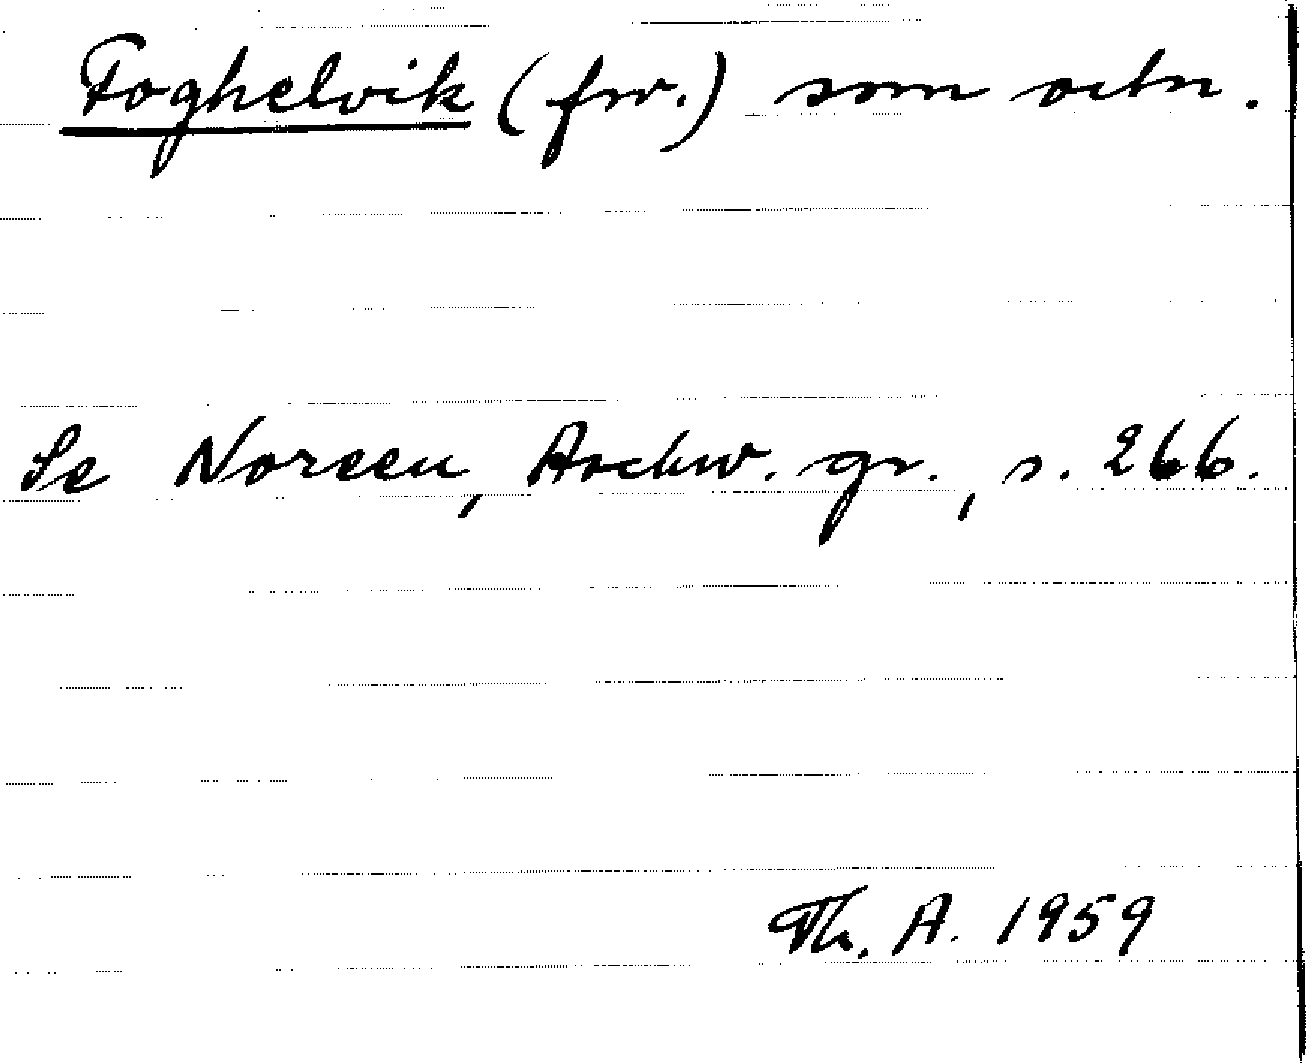 Foghelvik (frv.) som ortn.
Se Noreen, Aschw. gr., s. 266.
Th. A. 1959